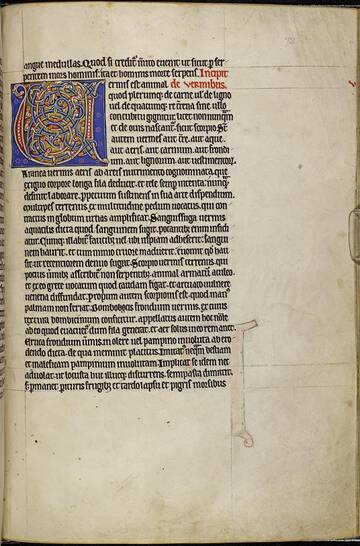 anguē medullas. Quod si credit̄, m̄ito euenit ut sicut p̄ ser
pentem mors hominis, ita et hominis morte serpens. Incipit
de vermibus.
Vermis est animal
quod plerumq; de carne uł de ligno
uel de quacumq; re t̄rena sine ullo
concubitu gignitur, licet nonnumq̄m
et de ouis nascant̄ sicut scorpio. St̄
autem uermes aut t̄re. aut aque.
aut aeris. aut carnium. aut frondi
um. aut lignorum. aut uestimentor̄.
Aranea uermis aeris ab aeris nutrimento cognominata. que
exiguo corpore longa fila deducit. et tele semp intenta. nunq̄
desinit laborare. ppetuum sustinens in sua arte dispendium.
multipes terrenus ex multitudine pedum uocatus. qui con
tractus in globum
sanguissuga uermis
aquatilis dicta quod sanguinem sugit. potantibꝰ enim insidi
atur. Cumq;
faucibꝰ uel ubi uspiam adherescit. sangui
nem haurit. et cum nimio cruore maduerit. euomit q̄d hau
sit ut recentiorem denuo sugat. Scorpio uermis terrenus. qui
pocius u̇mibꝰ asscribit̄ non serpentibꝰ. animal armatū aculeo.
et ex eo grece uocatum quod caudam figat. et arcuato uulnere
uenena diffundat. Proprium autem scorpionis est. quod manꝰ
palmam non feriat. Bombex frondium uermis. ex cuius
textura bombicinum conficitur. appellatus autem hoc noīe
ab eo quod euacuet̄ dum fila generat. et aer solus in eo remanet.
Eruca frondium u̇mis. in olere uel pampino inuoluta. ab ero
dendo dicta. de qua meminit plautus. Imitat̄ neq̄m bestiam
et maleficam. pampinum inuolutam. Implicat se. idem nec
aduolat. ut locusta huc illucq; discurrens. semipasta dimittit.
s; pmanet pituris frugibꝰ. et tardo lapsu et pigris morsibus